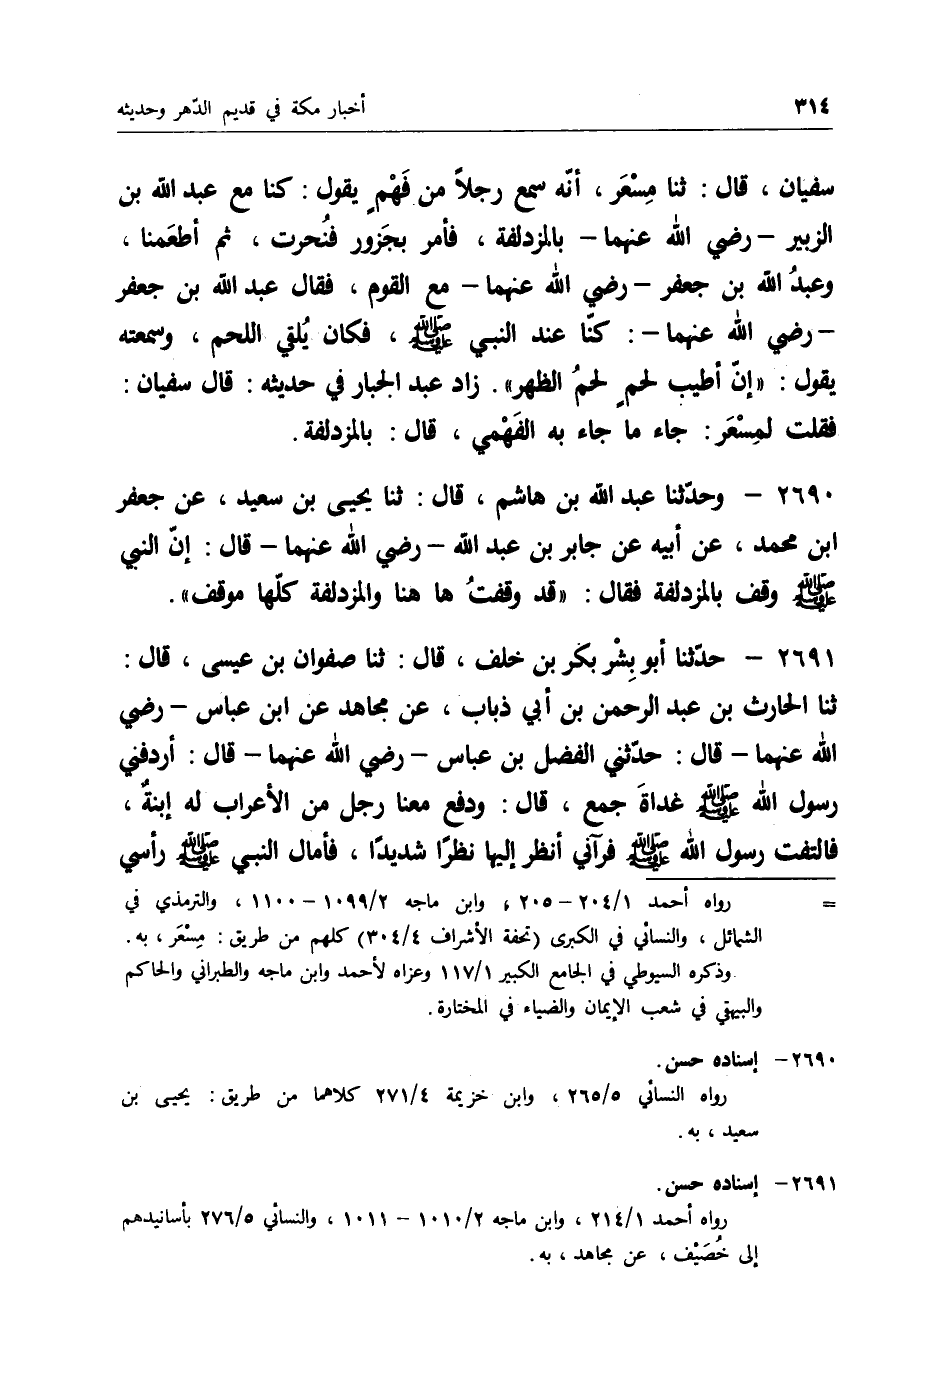 ٣١٤
أخبار مكة في قديم الدّهر وحديثه
سفيان ، قال : ثنا مِسْعَر ، أنّه سمع رجلاً من فَهْمٍ يقول : كنا مع عبد الله بن
الزبير –رضي الله عنهما– بالمزدلفة ، فأمر بجَزور فنُحرت ، ثم أطعَمنا ،
وعبدُ الله بن جعفر –رضي الله عنهما– مع القوم ، فقال عبد الله بن جعفر
–رضي الله عنهما– : كنّا عند النبي ﷺ ، فكان يُلقي اللحم ، وسمعته
يقول : «إنّ أطيب لحمٍ لحمُ الظهر» . زاد عبد الجبار في حديثه : قال سفيان :
فقلت لمِسْعَر : جاء ما جاء به الفَهْمي ، قال : بالمزدلفة .
٢٦٩٠ – وحدّثنا عبد الله بن هاشم ، قال : ثنا يحيى بن سعيد ، عن جعفر
ابن محمد ، عن أبيه عن جابر بن عبد الله –رضي الله عنهما– قال : إنّ النبي
ﷺ وقف بالمزدلفة فقال : «قد وقفتُ ها هنا والمزدلفة كلّها موقف» .
٢٦٩١ – حدّثنا أبو بِشْر بكر بن خلف ، قال : ثنا صفوان بن عيسى ، قال :
ثنا الحارث بن عبد الرحمن بن أبي ذباب ، عن مجاهد عن ابن عباس –رضي
الله عنهما– قال : حدّثني الفضل بن عباس –رضي الله عنهما– قال : أردفني
رسول الله ﷺ غداةَ جمع ، قال : ودفع معنا رجل من الأعراب له إبنةٌ ،
فالتفت رسول الله ﷺ فرآني أنظر إليها نظرًا شديدًا ، فأمال النبي ﷺ رأسي
= رواه أحمد ٢٠٤/١–٢٠٥ ، وابن ماجه ١٠٩٩/٢–١١٠٠ ، والترمذي في
الشمائل ، والنسائي في الكبرى (تحفة الأشراف ٣٠٤/٤) كلهم من طريق : مِسْعَر ، به .
وذكره السيوطي في الجامع الكبير ١١٧/١ وعزاه لأحمد وابن ماجه والطبراني والحاكم
والبيهقي في شعب الإيمان والضياء في المختارة .
٢٦٩٠– إسناده حسن .
رواه النسائي ٢٦٥/٥ ، وابن خزيمة ٢٧١/٤ كلاهما من طريق : يحيى بن
سعيد ، به .
٢٦٩١– إسناده حسن .
رواه أحمد ٢١٤/١ ، وابن ماجه ١٠١٠/٢ – ١٠١١ ، والنسائي ٢٧٦/٥ بأسانيدهم
إلى خُصَيْف ، عن مجاهد ، به .